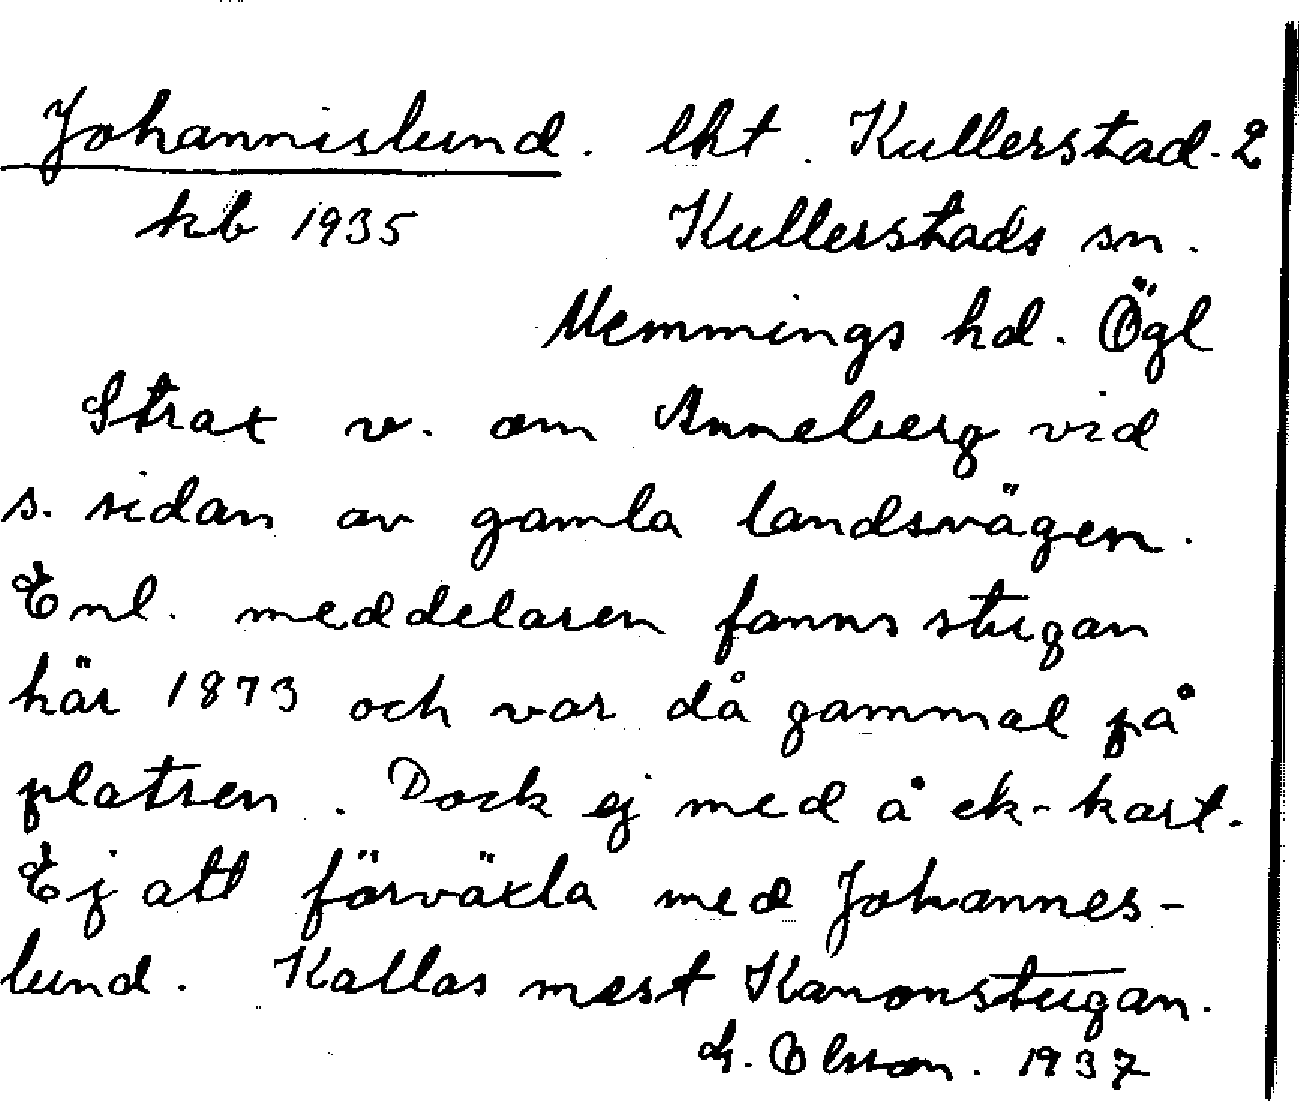 Johannislund. lht. Kullerstad. 2
kb 1935 Kullerstads sn.
Memmings hd. Ögl
Strax v. om Anneberg vid
s. sidan av gamla landsvägen.
Enl. meddelaren fanns stugan
här 1873 och var då gammal på
platsen. Dock ej med å ek-kart.
Ej att förväxla med Johannes-
lund. Kallas mest Kanonstugan.
G. Olsson. 1937